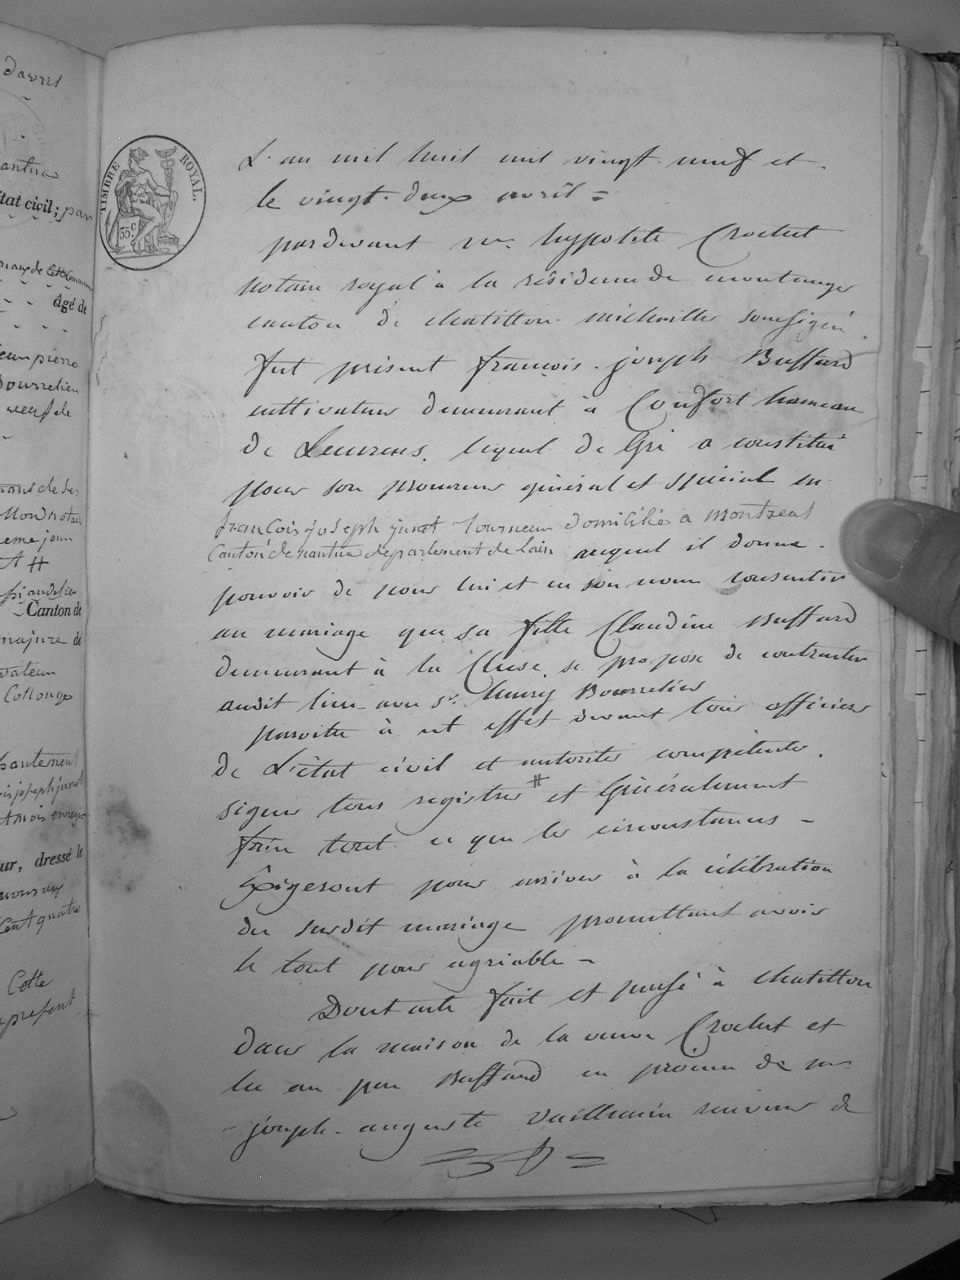 TIMBRE ROYAL.
35c
L'an mil huit cent vingt neuf et
le vingt-deux avril =
pardevant me hypolite Crochet
notaire royal à la résidence de montanges
canton de chatillon michaille soussigné
fut présent françois-joseph Buffard
cultivateur demeurant à Confort hameau
de lequel de gré a constitué
pour son procureur général et spécial en
francois joseph junet tourneur domicilié a montreal
Canton de nantua departement de lain auquel il donne
pouvoir de pour lui et en son nom consentir
au mariage que sa fille Claudine Buffard
demeurant à la Cluse se propose de contracter
audit lieu avec Sr. Bourrelier
paroitre à cet effet devant tous officiers
de L'état civil et autorités compétentes.
signer tous registres # et Généralement
faire tout ce que les circonstances -
Exigeront pour arriver à la célébration
du susdit mariage promettant avoir
le tout pour agréable -
Dont acte fait et passé à chatillon
dans la maison de la veuve Crochet et
lu au pur Buffard en présence de mr
joseph-auguste Vuillemin receveur de
d'avril
nantua
état civil; par
age de
jean pierre
Bourrelier
veuf de
A #
Canton de
majure de
Collonge
joseph junet
ur, dressé le
Cent quatre
Cette
present